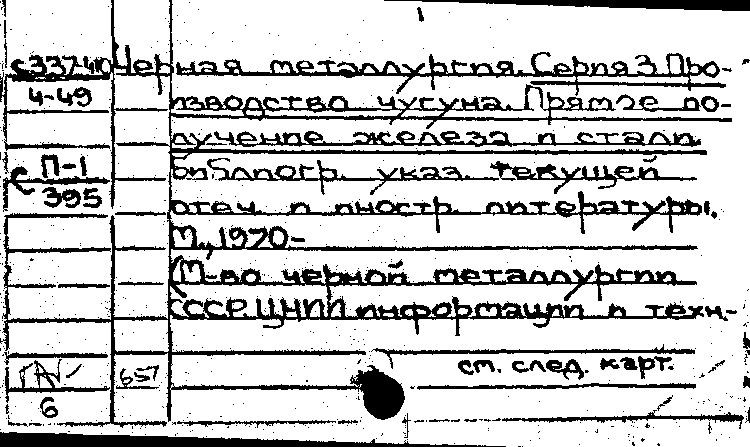 с 337410 Черная металлургия. Серия 3. Про-
4-49 изводство чугуна. Прямое по-
лучение железа и стали.
П-1 Библиогр. указ. текущей
с 395 отеч. и иностр. литературы.
М., 1970-
(М-во черной металлургии
СССР. ЦНИИ информации и техн.-
см. след. карт.
657
6